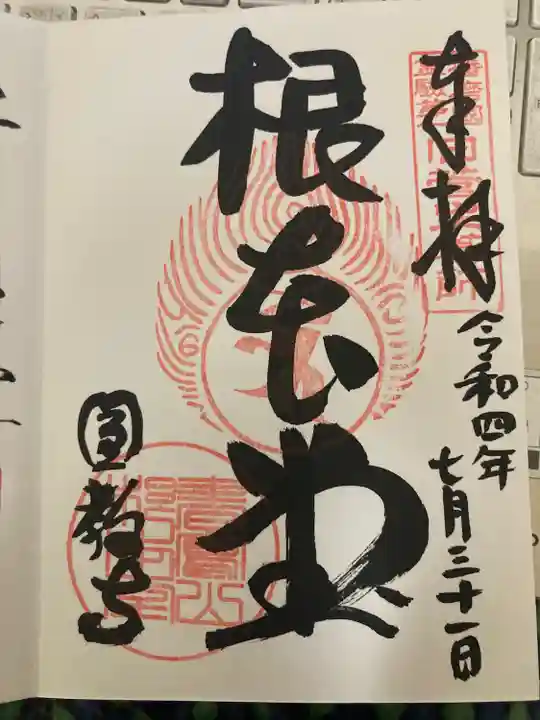 奉拝
令和四年
七月三十一日
根本堂
圓教寺